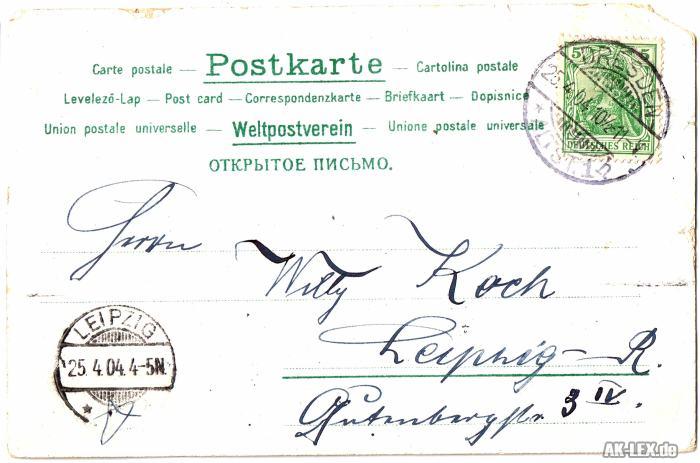 Carte postale — Postkarte — Cartolina postale
Levelező-Lap — Post card — Correspondenzkarte — Briefkaart — Dopisnice
Union postale universelle — Weltpostverein — Unione postale universale
ОТКРЫТОЕ ПИСЬМО.
5 5
DEUTSCHES REICH
DRESDEN
25.4.04.10/2-11
ALTST. 14
Herrn
Willy Koch
Leipzig-R.
Gutenbergstr. 3 IV.
LEIPZIG
25.4.04.4-5N
AK-LEX.de